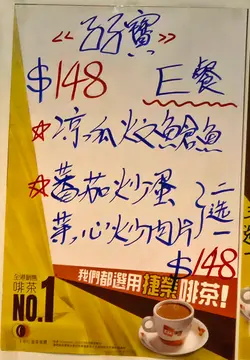 $148 E餐
☆凉瓜炆鱠魚
☆蕃茄炒蛋
菜心炒肉片 二选一
$148
全港銷售
啡茶
NO.1
我們都選用捷榮啡茶!